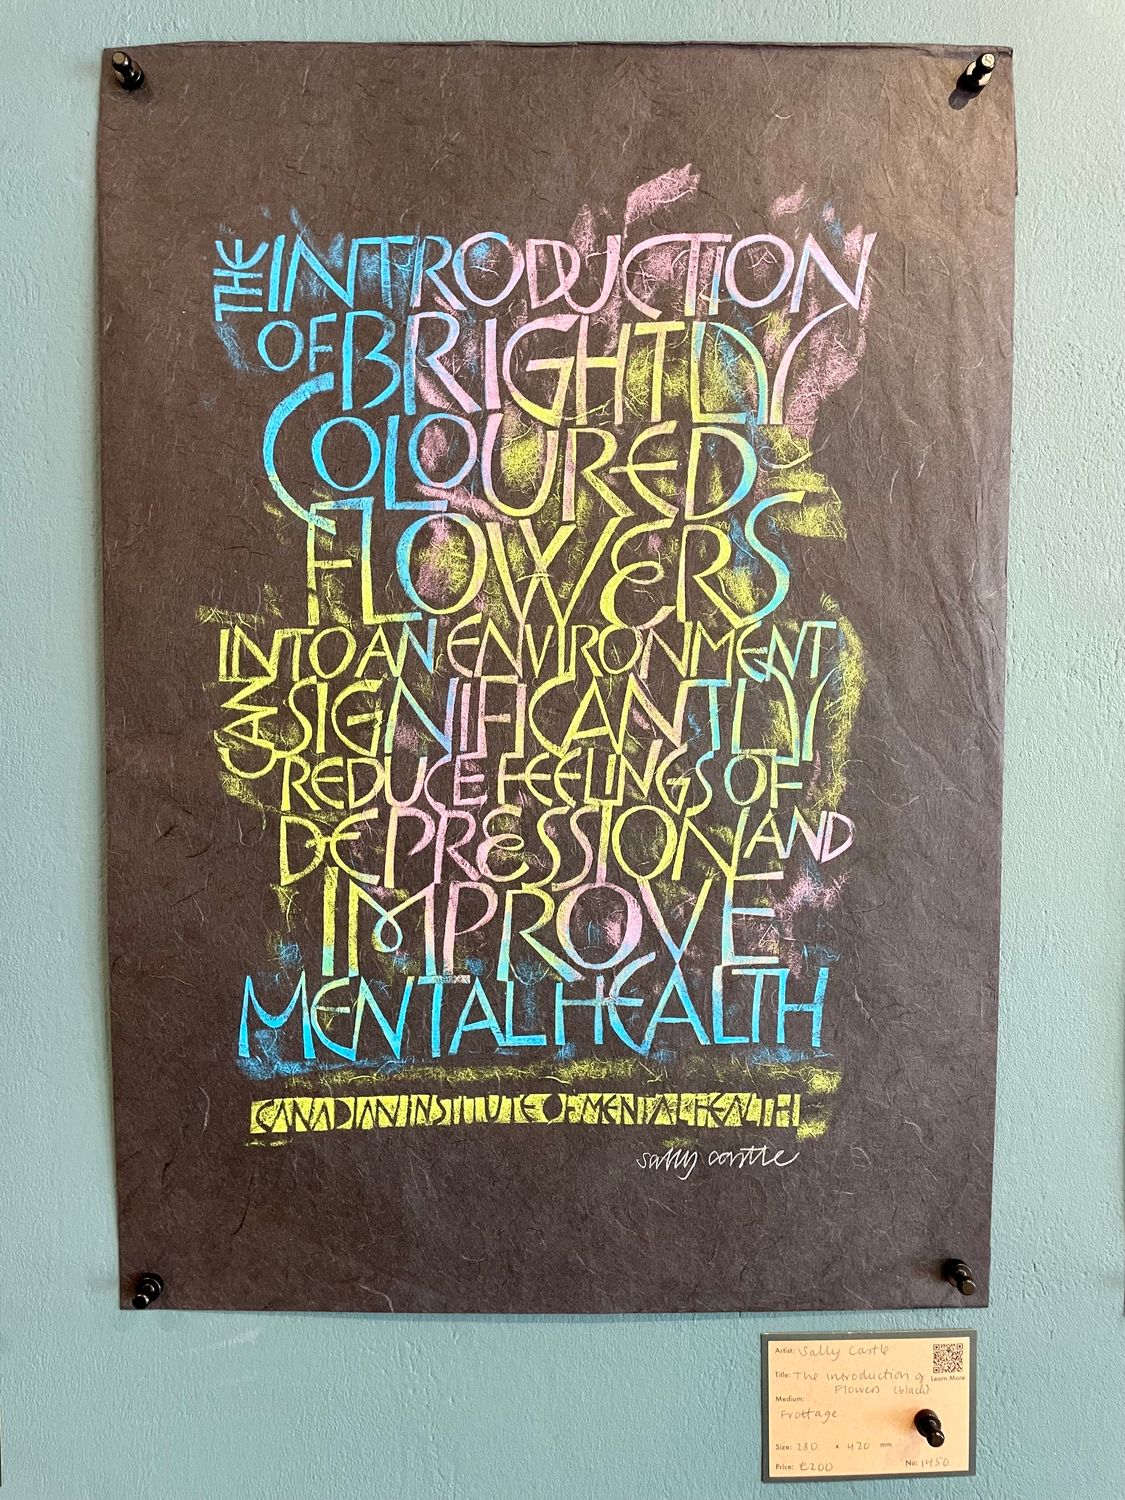 THE INTRODUCTION
OF BRIGHTLY
COLOURED
FLOWERS
INTO AN ENVIRONMENT
CAN SIGNIFICANTLY
REDUCE FEELINGS OF
DEPRESSION AND
IMPROVE
MENTAL HEALTH
CANADIAN INSTITUTE OF MENTAL HEALTH
sally castle
Artist: Sally Castle
Title: The Introduction of
Flowers (black)
Learn More
Medium:
Frottage
Size: 280 x 420 mm
Price: £200 No: 1450